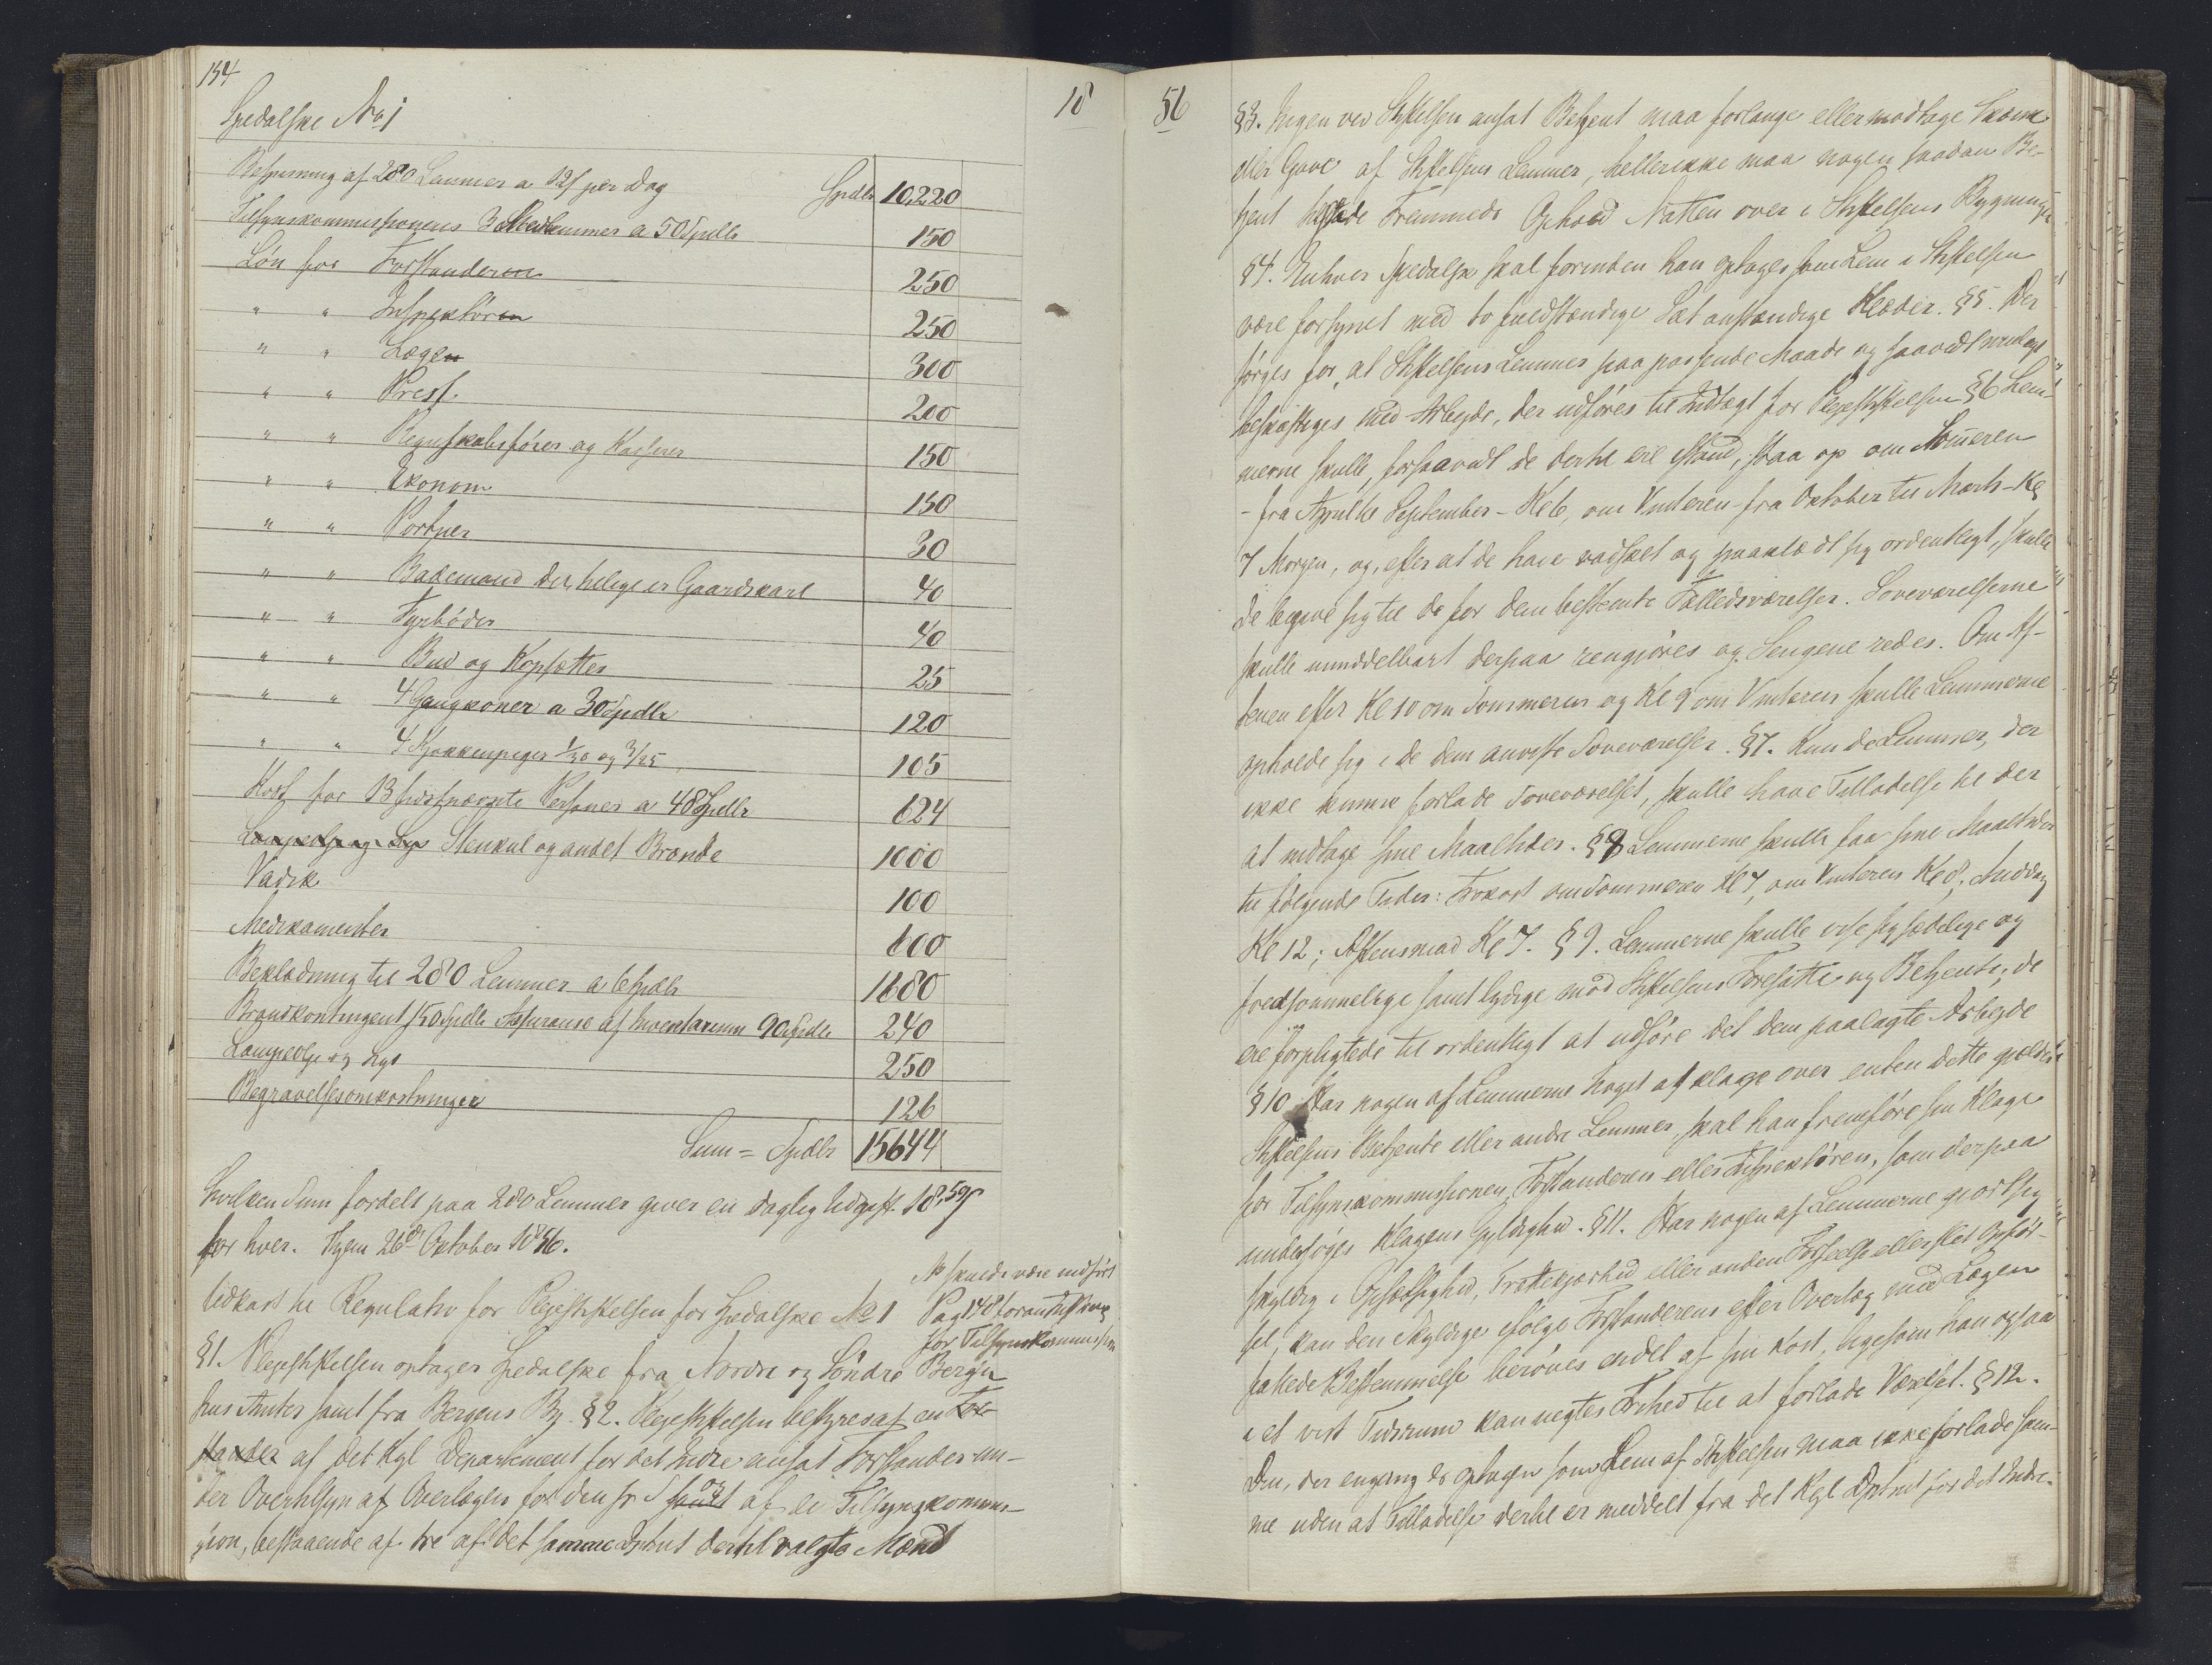 154
18
Spedalske No 1
Bespisning af 280 Lemmer a 12ß per Dag Spdlr 10,220
Tilsynskommissionens 3 Medlemmer a 50 Spdlr 150
Løn for Forstanderen 250
" " Inspektøren 250
" " Lægen 300
" " Prest. 200
" " Regnskabsfører og Kasserer 150
" " Ekonom 150
" " Portner 30
" " Bademand der tillige er Gaardskarl 40
" " Fyrbøder 40
" " Bud og Kopsætter 25
" " 4 Gangkoner a 30 Spdlr 120
" " 4 Kjøkkenpiger 1/30 og 3/25 105
Kost for 13 sidstnævnte Personer a 48 Spdlr 624
Lampeolje og Lys Stenkul og andet Brænde 1000
Vadsk 100
Medikamenter 600
Beklædning til 280 Lemmer a 6 Spdlr 1680
Brandkontingent 150 Spdlr Assurance af Inventarium 90 Spdlr 240
Lampeolje og Lys 250
Begravelsesomkostninger 126
Sum = Spdlr 15644
hvilken Sum fordelt paa 280 Lemmer giver en daglig Udgift 18,59ß
for hver. Bergen 26de Oktober 1856.
No skulde være indført
Udkast til Regulativ for Plejestiftelsen for Spedalske No 1 Pag 148 foran
for Tilsynskommission
§1. Plejestiftelsen optager Spedalske fra Nordre og Søndre Bergen
hus Amter samt fra Bergens By. §2. Plejestiftelsen bestyres af en For-
stander af det Kgl Departement for det Indre ansat Forstander un-
der Overtilsyn af Overlægen for den sp S samt af en Tilsynskommis-
sion, bestaaende af tre af det samme Dptmt dertil valgte Mænd
56
§3. Ingen ved Stiftelsen ansat Betjent maa forlange eller modtage Skjænk
eller Gave af Stiftelsens Lemmer, hellerikke maa nogen saadan Be-
tjent tilstede Fremmede Ophold Natten over i Stiftelsens Bygninger
§4. Enhver Spedalsk skal forinden han optages som Lem i Stiftelsen
være forsynet med to fuldstændige Sæt anstændige Klæder. §5. Der
sørges for, at Stiftelsens Lemmer paa passende Maade og saavidt muligt
beskæftiges med Arbejde, der udføres til Indtægt for Plejestiftelsen §6 Lem-
merne skulle, forsaavidt de dertil ere istand, staa op om Sommeren
- fra April til September - Kl 6, om Vinteren - fra Oktober til Marts - Kl
7 Morgen, og, efter at de have vadsket og paaklædt sig ordentligt, skulle
de begive sig til de for dem bestemte Fælledsværelser. Soveværelserne
skulle umiddelbart derpaa rengjøres og Sengene redes. Om Af-
tenen efter Kl 10 om Sommeren og Kl 9 om Vinteren skulle Lemmerne
opholde sig i de dem anviste Soveværelser. §7. Kun de Lemmer, der
ikke kunne forlade Soveværelset, skulle have Tilladelse til der
at indtage sine Maaltider. §8 Lemmerne skulle faa sine Maaltider
til følgende Tider: Frokost om Sommeren Kl 7, om Vinteren Kl 8; Middag
Kl 12; Aftensmad Kl 7. §9. Lemmerne skulle vise sig sædelige og
fredsommelige samt lydige mod Stiftelsens Foresatte og Betjente; de
ere forpligtede til ordentligt at udføre det dem paalagte Arbejde
§10 Har nogen af Lemmerne noget at klage over enten dette gjælder
Stiftelsens Betjente eller andre Lemmer, skal han fremføre sin Klage
for Tilsynskommissionen, Forstanderen eller Inspektøren, som derpaa
undersøger Klagens Gyldighed. §11. Har nogen af Lemmerne gjort sig
skyldig i Opsætsighed, Trættekjærhed eller anden Forseelse eller slet Opfør-
sel, kan den Skyldige ifølge Forstanderens efter Overlæg med Lægen
fattede Bestemmelse berøves endel af sin Kost, ligesom han ogsaa
i et vist Tidsrum kan negtes Frihed til at forlade Værelset. §12.
Den, der engang er optagen som Lem af Stiftelsen maa ikke forlade sam-
me uden at Tilladelse dertil er meddelt fra det Kgl Dptmt for det Indre.